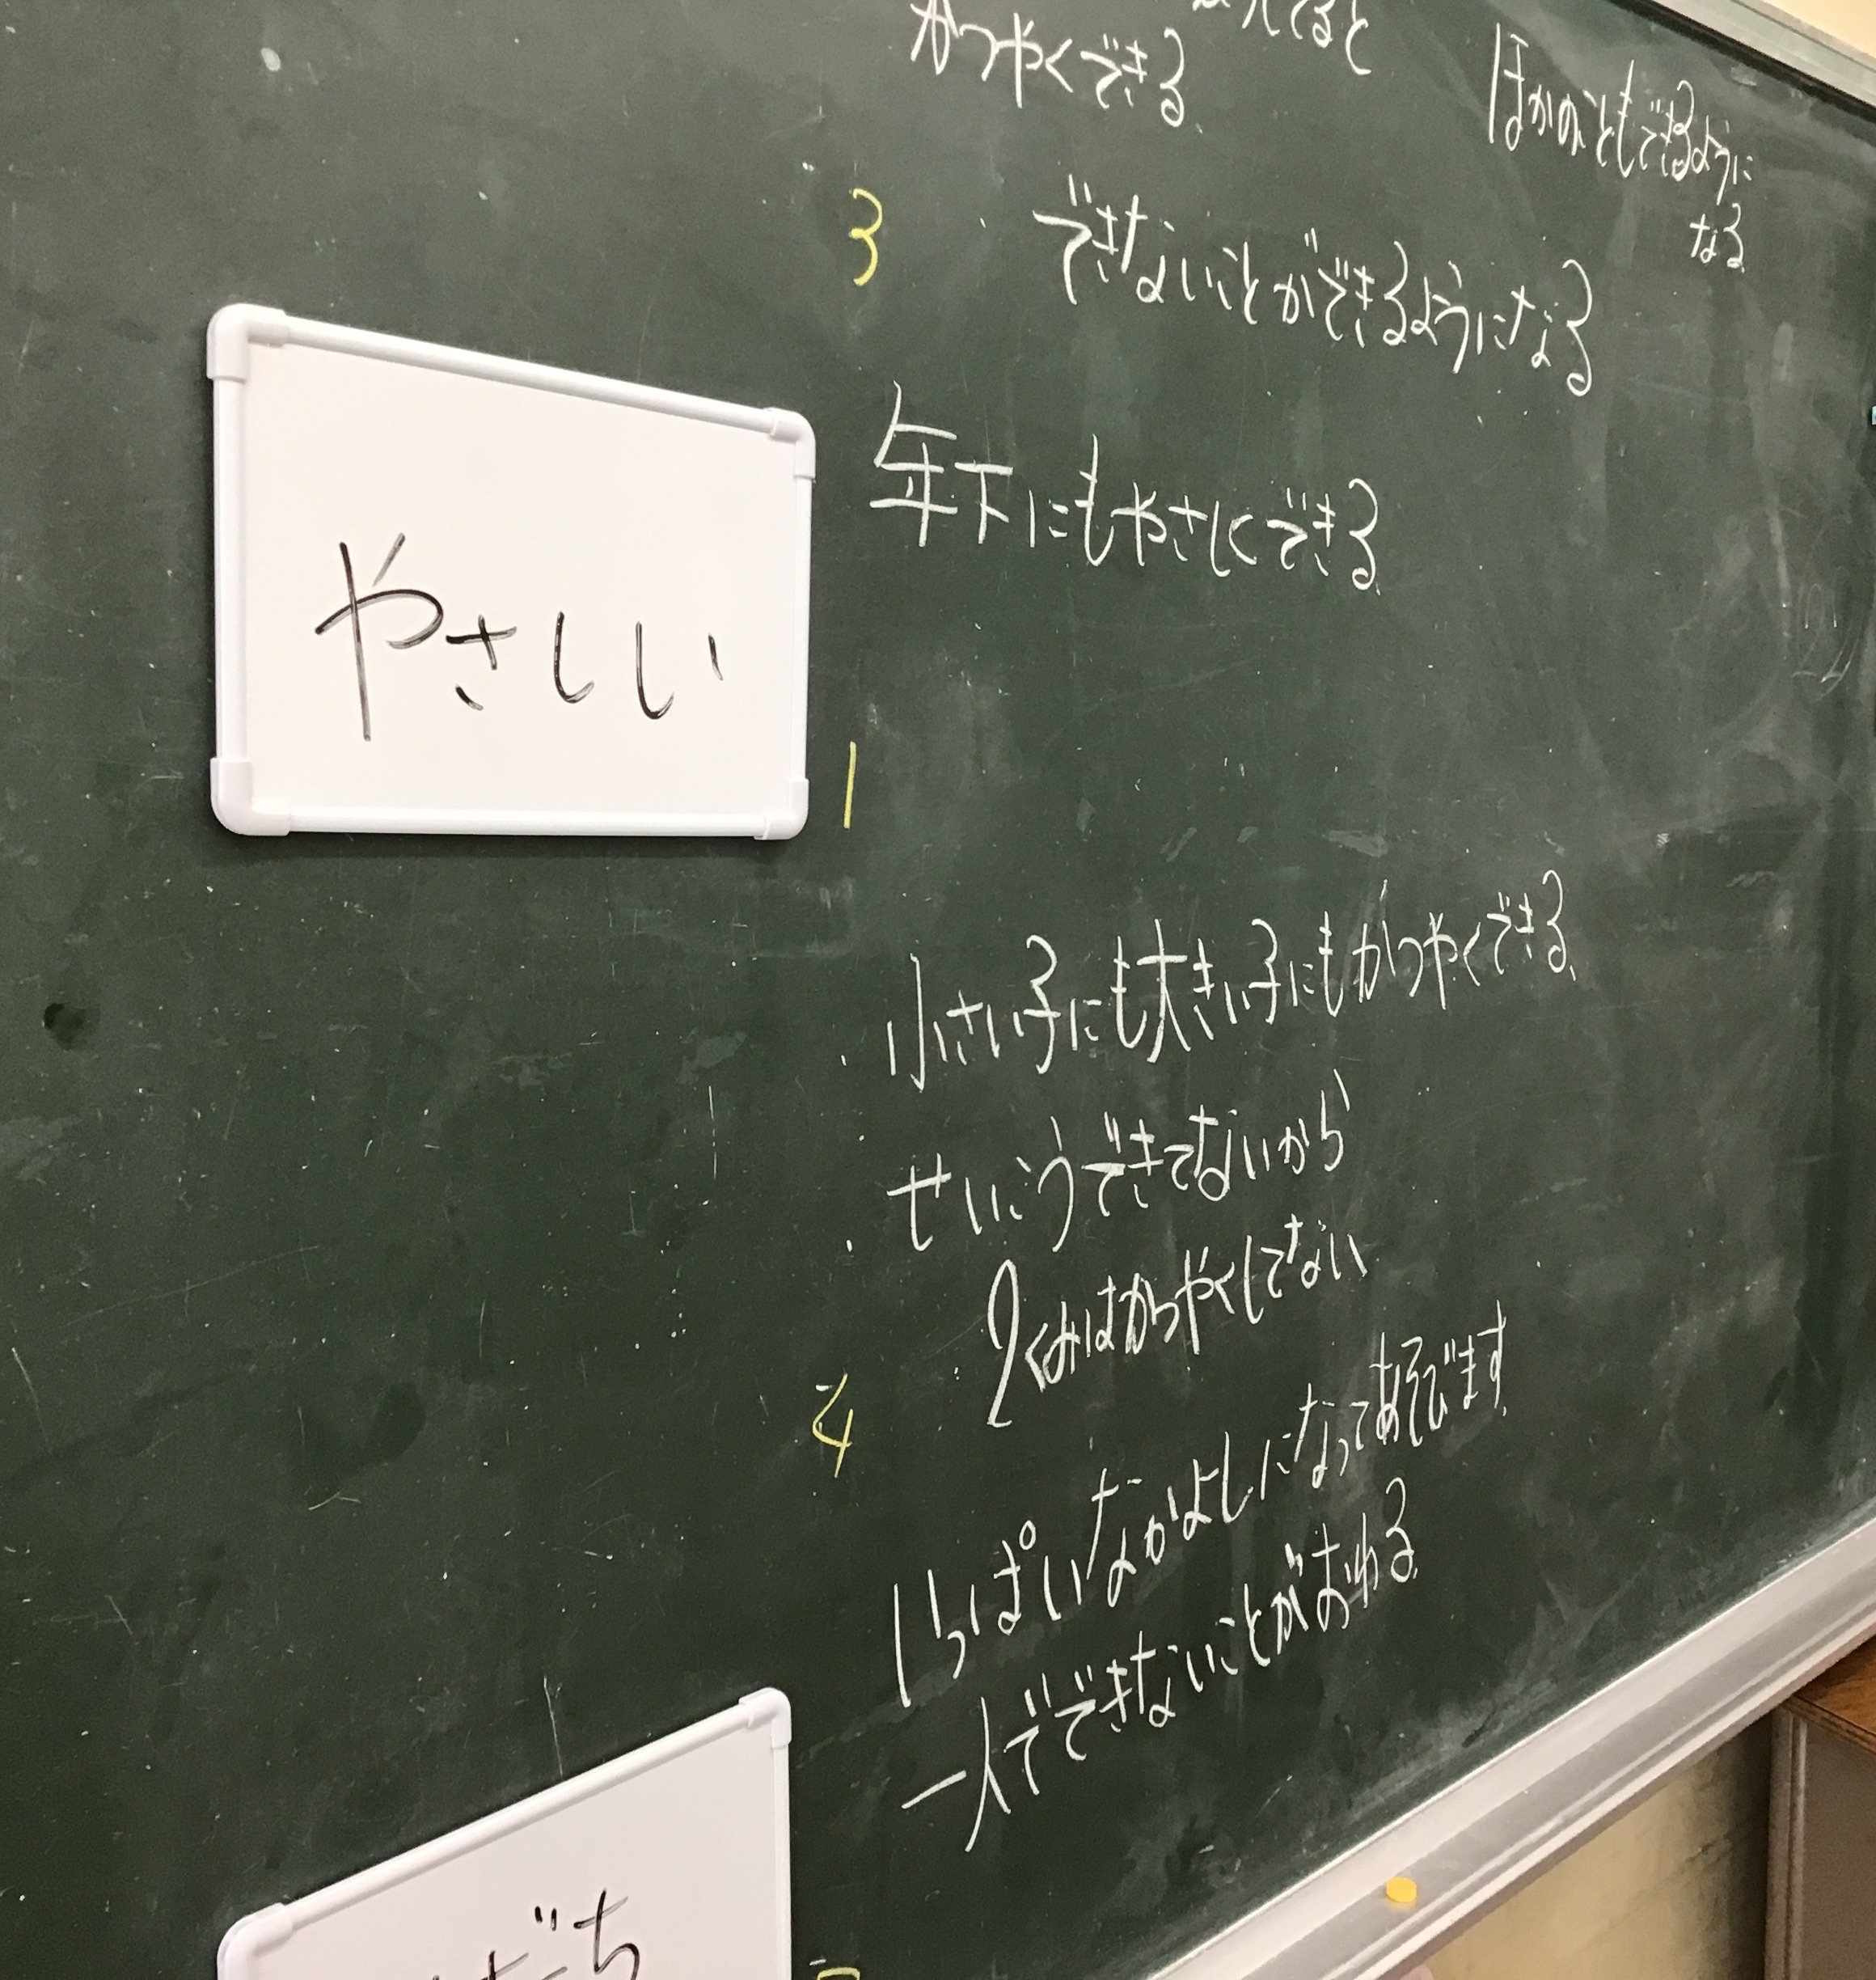 かつやくできる
ほかのこともできるように
なる
3
できないことができるようになる
年下にもやさしくできる
やさしい
1
小さい子にも大きい子にもかつやくできる
せいこうできてないから
2くみはかつやくしてない
4
いっぱいなかよしになってあそびます
一人でできないことがおわる